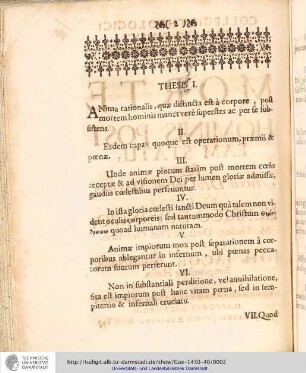 ( 2 )
THESIS I.
ANima rationalis, quæ distincta est à corpore, post
mortem hominis manet superstes ac per se sub-
sistens.
II.
Eadem capax quoque est operationum, præmii &
pœnæ.
III.
Unde animæ piorum statim post mortem cœlo
receptæ & ad visionem Dei per lumen gloriæ admissæ,
gaudiis cœlestibus perfruuntur.
IV.
In ista gloria cœlesti sancti Deum quà talem non vi-
dent oculis corporeis; sed tantummodo Christum
quoad humanam naturam.
V.
Animæ impiorum mox post separationem à cor-
poribus ablegantur in infernum, ubi pœnas pecca-
torum suorum perferunt.
VI.
Non in substantiali perditione, vel annihilatione,
sita est impiorum post hanc vitam pœna, sed in sem-
piterno & infernali cruciatu.
VII. Quod
TECHNISCHE
UNIVERSITÄT
DARMSTADT
http://tudigit.ulb.tu-darmstadt.de/show/Gue-1450-40/0002
Universitäts- und Landesbibliothek Darmstadt